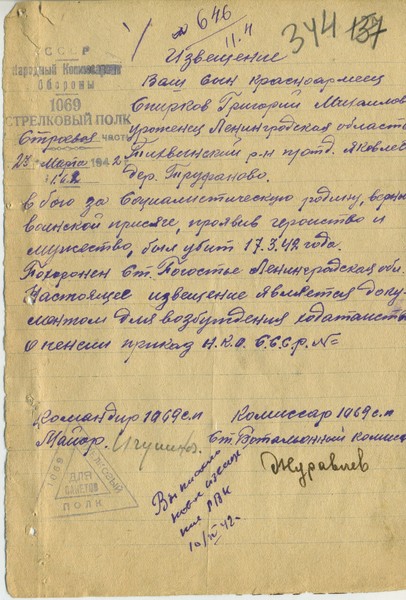 № 646
11.4
344 137
СССР
Народный Комиссариат
Обороны
1069
СТРЕЛКОВЫЙ ПОЛК
Строевая часть
23 Марта 1942
№ 162
Извещение
Ваш сын красноармеец
Спирков Григорий Михайлов
уроженец Ленинградская область
Тихвинский р-н
дер. Труфаново.
в бою за Социалистическую родину, верны
воинской присяге, проявив геройство и
мужество, был убит 17.3.42 года.
Похоронен ст. Погостье Ленинградская обл.
Настоящее извещение является доку-
ментом для возбуждения ходатайств
о пенсии приказ Н.К.О. С.С.С.р. №=
Командир 1069 с.п
Майор.
Комиссар 1069 с.п
Ст. Батальонный комисса
Журавлев
1069 СТРЕЛКОВЫЙ
ДЛЯ
ПАКЕТОВ
ПОЛК
РВК
10/IV 42 г.